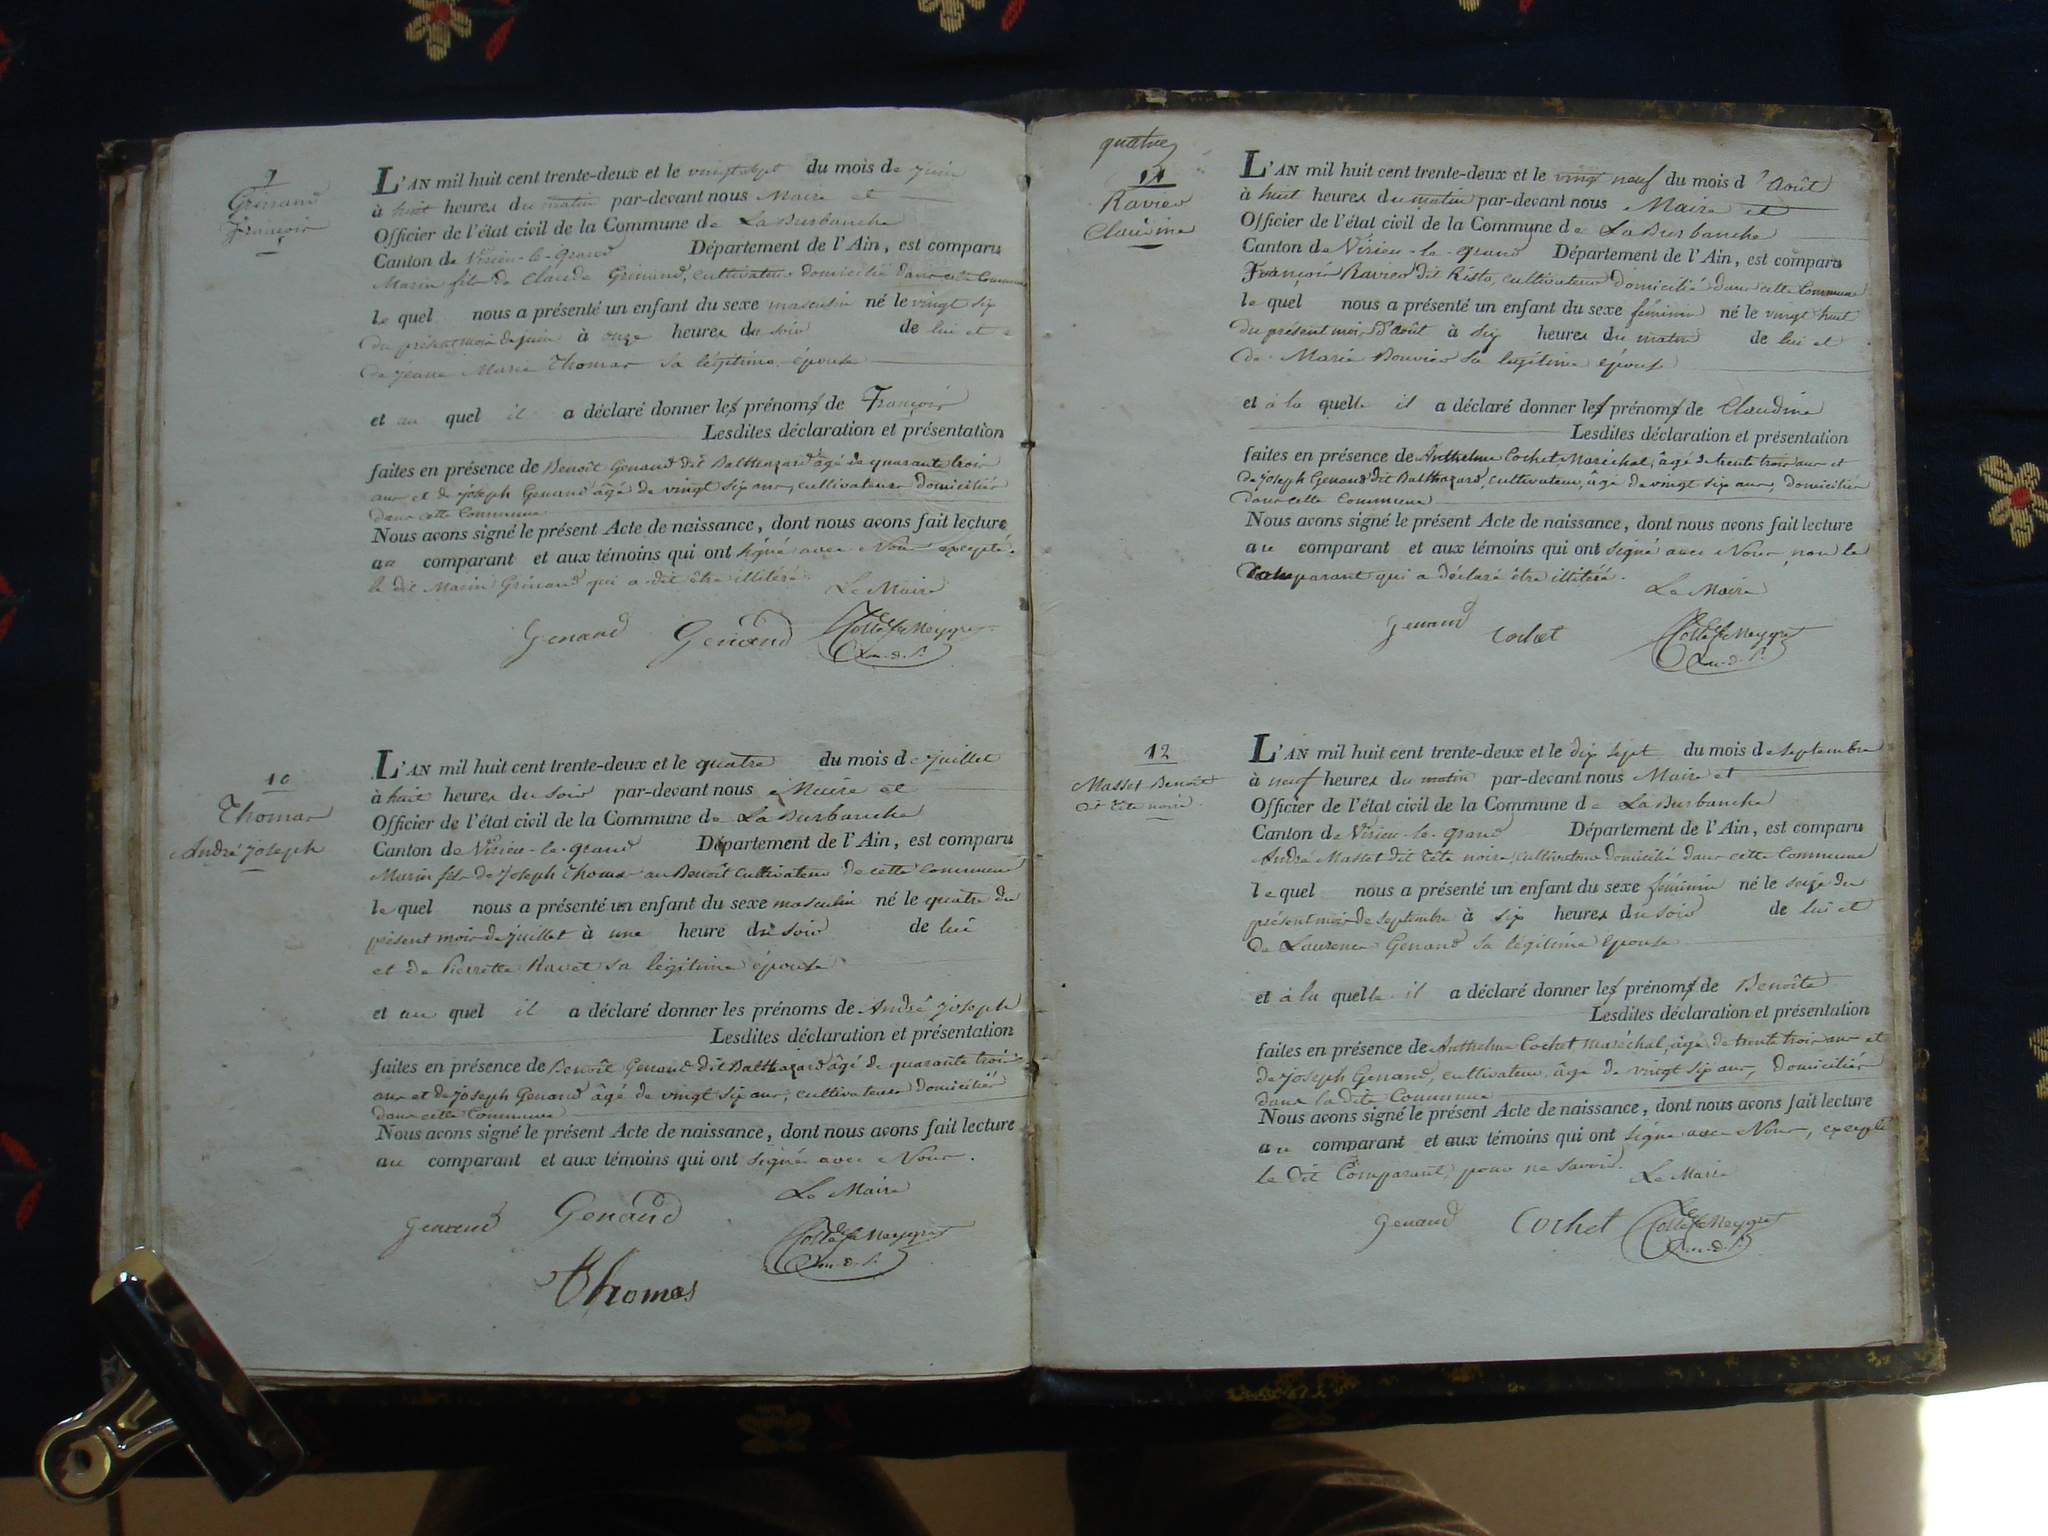 9
Grinand
François
L'AN mil huit cent trente-deux et le vingt sept du mois de juin
à huit heures du matin par-devant nous Maire et
Officier de l'état civil de la Commune de La Burbanche
Canton de Virieu-le-grand Département de l'Ain, est comparu
Marin fils de Claude Grinand, cultivateur domicilié dans cette Commune
le quel nous a présenté un enfant du sexe masculin né le vingt six
du présent mois de juin à onze heures du soir de lui et
de jeane Marie Thomas sa légitime épouse
et au quel il a déclaré donner les prénoms de François
Lesdites déclaration et présentation
faites en présence de Benoît Genand dit Balthazard âgé de quarante trois
ans et de joseph Genand âgé de vingt six ans, cultivateurs domiciliés
dans cette Commune
Nous avons signé le présent Acte de naissance, dont nous avons fait lecture
au comparant et aux témoins qui ont signé avec Nous excepté
le dit Marin Grinand qui a dit être illitéré.
Le Maire
Genand Genand
10
Thomas
André joseph
L'AN mil huit cent trente-deux et le quatre du mois de juillet
à huit heures du soir par-devant nous Maire et
Officier de l'état civil de la Commune de La Burbanche
Canton de Virieu-le-grand Département de l'Ain, est comparu
Marin fils de joseph Thomas au Benoît Cultivateur de cette Commune
le quel nous a présenté un enfant du sexe masculin né le quatre du
présent mois de juillet à une heure du soir de lui
et de Pierrette Ravet sa légitime épouse
et au quel il a déclaré donner les prénoms de André joseph
Lesdites déclaration et présentation
faites en présence de Benoît Genand dit Balthazard âgé de quarante trois
ans et de joseph Genand âgé de vingt six ans, cultivateurs domiciliés
dans cette Commune
Nous avons signé le présent Acte de naissance, dont nous avons fait lecture
au comparant et aux témoins qui ont signé avec Nous.
Le Maire
Genand Genand
Thomas
quatre
11
Ravier
Claudine
L'AN mil huit cent trente-deux et le vingt neuf du mois d'Août
à huit heures du matin par-devant nous Maire et
Officier de l'état civil de la Commune de La Burbanche
Canton de Virieu-le-grand Département de l'Ain, est comparu
François Ravier dit Risto, cultivateur domicilié dans cette Commune
le quel nous a présenté un enfant du sexe féminin né le vingt huit
du présent mois D'Août à six heures du matin de lui et
de Marie Bouvier sa légitime épouse
et à la quelle il a déclaré donner les prénoms de Claudine
Lesdites déclaration et présentation
faites en présence de Anthelme Cochet, Maréchal, âgé de trente trois ans et
de joseph Genand dit Balthazard, cultivateur, âgé de vingt six ans, domiciliés
dans cette Commune
Nous avons signé le présent Acte de naissance, dont nous avons fait lecture
au comparant et aux témoins qui ont signé avec Nous, non le
Comparant qui a déclaré être illitéré.
Le Maire
Genand Cochet
12
Masset Benoîte
dit tête noire
L'AN mil huit cent trente-deux et le dix sept du mois de septembre
à neuf heures du matin par-devant nous Maire et
Officier de l'état civil de la Commune de La Burbanche
Canton de Virieu-le-grand Département de l'Ain, est comparu
André Masset dit tête noire, cultivateur domicilié dans cette Commune
le quel nous a présenté un enfant du sexe féminin né le seize du
présent mois de septembre à six heures du soir de lui et
de Laurence Genand sa légitime épouse
et à la quelle il a déclaré donner les prénoms de Benoîte
Lesdites déclaration et présentation
faites en présence de Anthelme Cochet, maréchal, âgé de trente trois ans et
de joseph Genand, cultivateur, âgé de vingt six ans, domiciliés
dans la dite Commune
Nous avons signé le présent Acte de naissance, dont nous avons fait lecture
au comparant et aux témoins qui ont signé avec Nous, excepté
le dit Comparant, pour ne savoir.
Le Maire
Genand Cochet